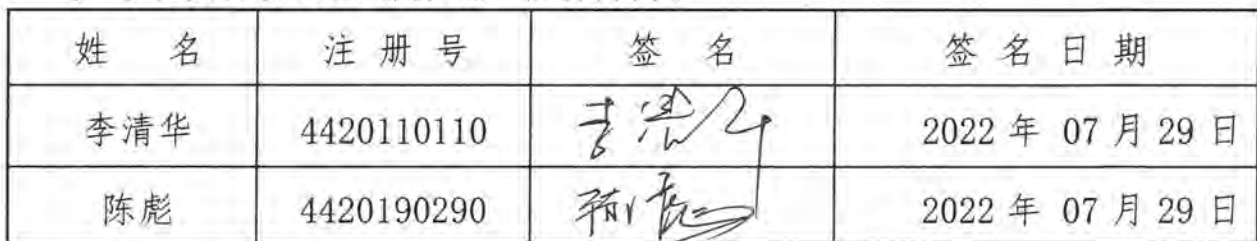 姓 名 注 册 号 签 名 签 名 日 期
李清华 4420110110 李清华 2022 年 07 月 29 日
陈彪 4420190290 陈彪 2022 年 07 月 29 日